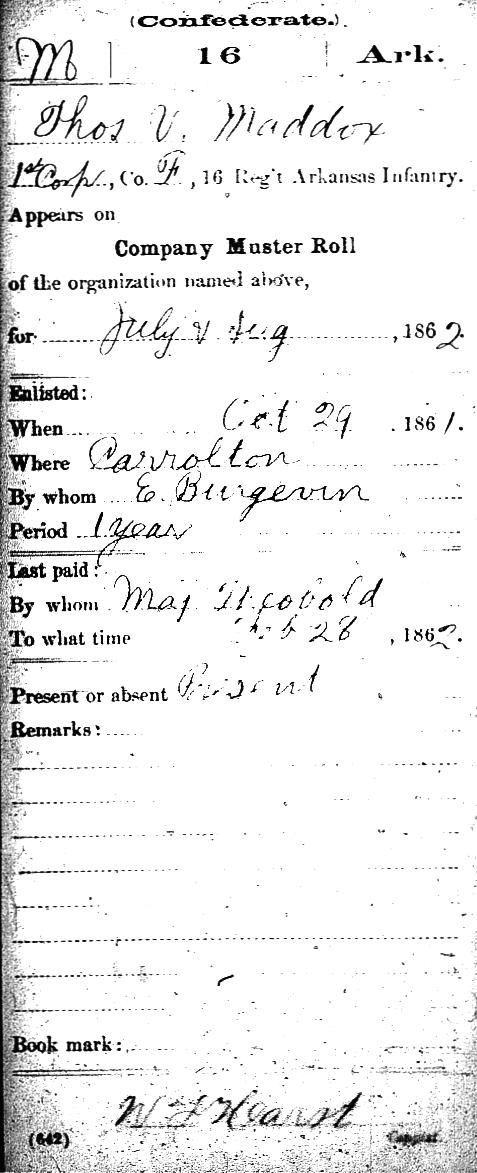 (Confederate.)
M | 16 | Ark.
Thos V. Maddox
1st Corp, Co. F, 16 Reg't Arkansas Infantry.
Appears on
Company Muster Roll
of the organization named above,
for July & Aug, 1862.
Enlisted:
When Oct 29. 1861.
Where Carrolton
By whom E. Burgevin
Period 1 year
Last paid:
By whom Maj Theobold
To what time Feb 28, 1862.
Present or absent Present
Remarks:
Book mark:
W F Hearst
(642) Copyist.